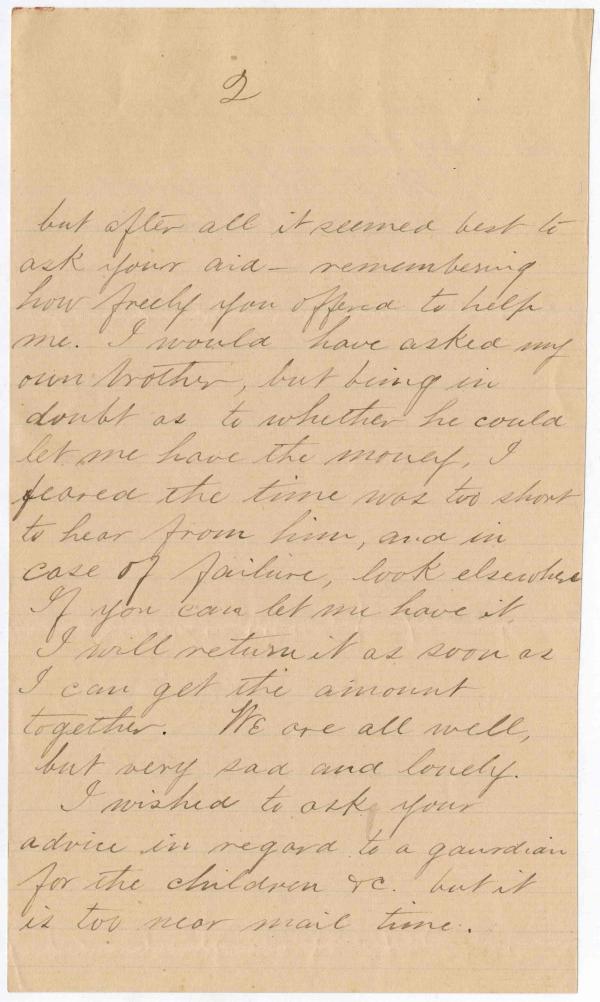 2
but after all it seemed best to
ask your aid – remembering
how freely you offered to help
me. I would have asked my
own brother, but being in
doubt as to whether he could
let me have the money, I
feared the time was too short
to hear from him, and in
case of failure, look elsewhere
If you can let me have it,
I will return it as soon as
I can get the amount
together. We are all well,
but very sad and lonely.
I wished to ask your
advice in regard to a gaurdian
for the children &c. but it
is too near mail time.